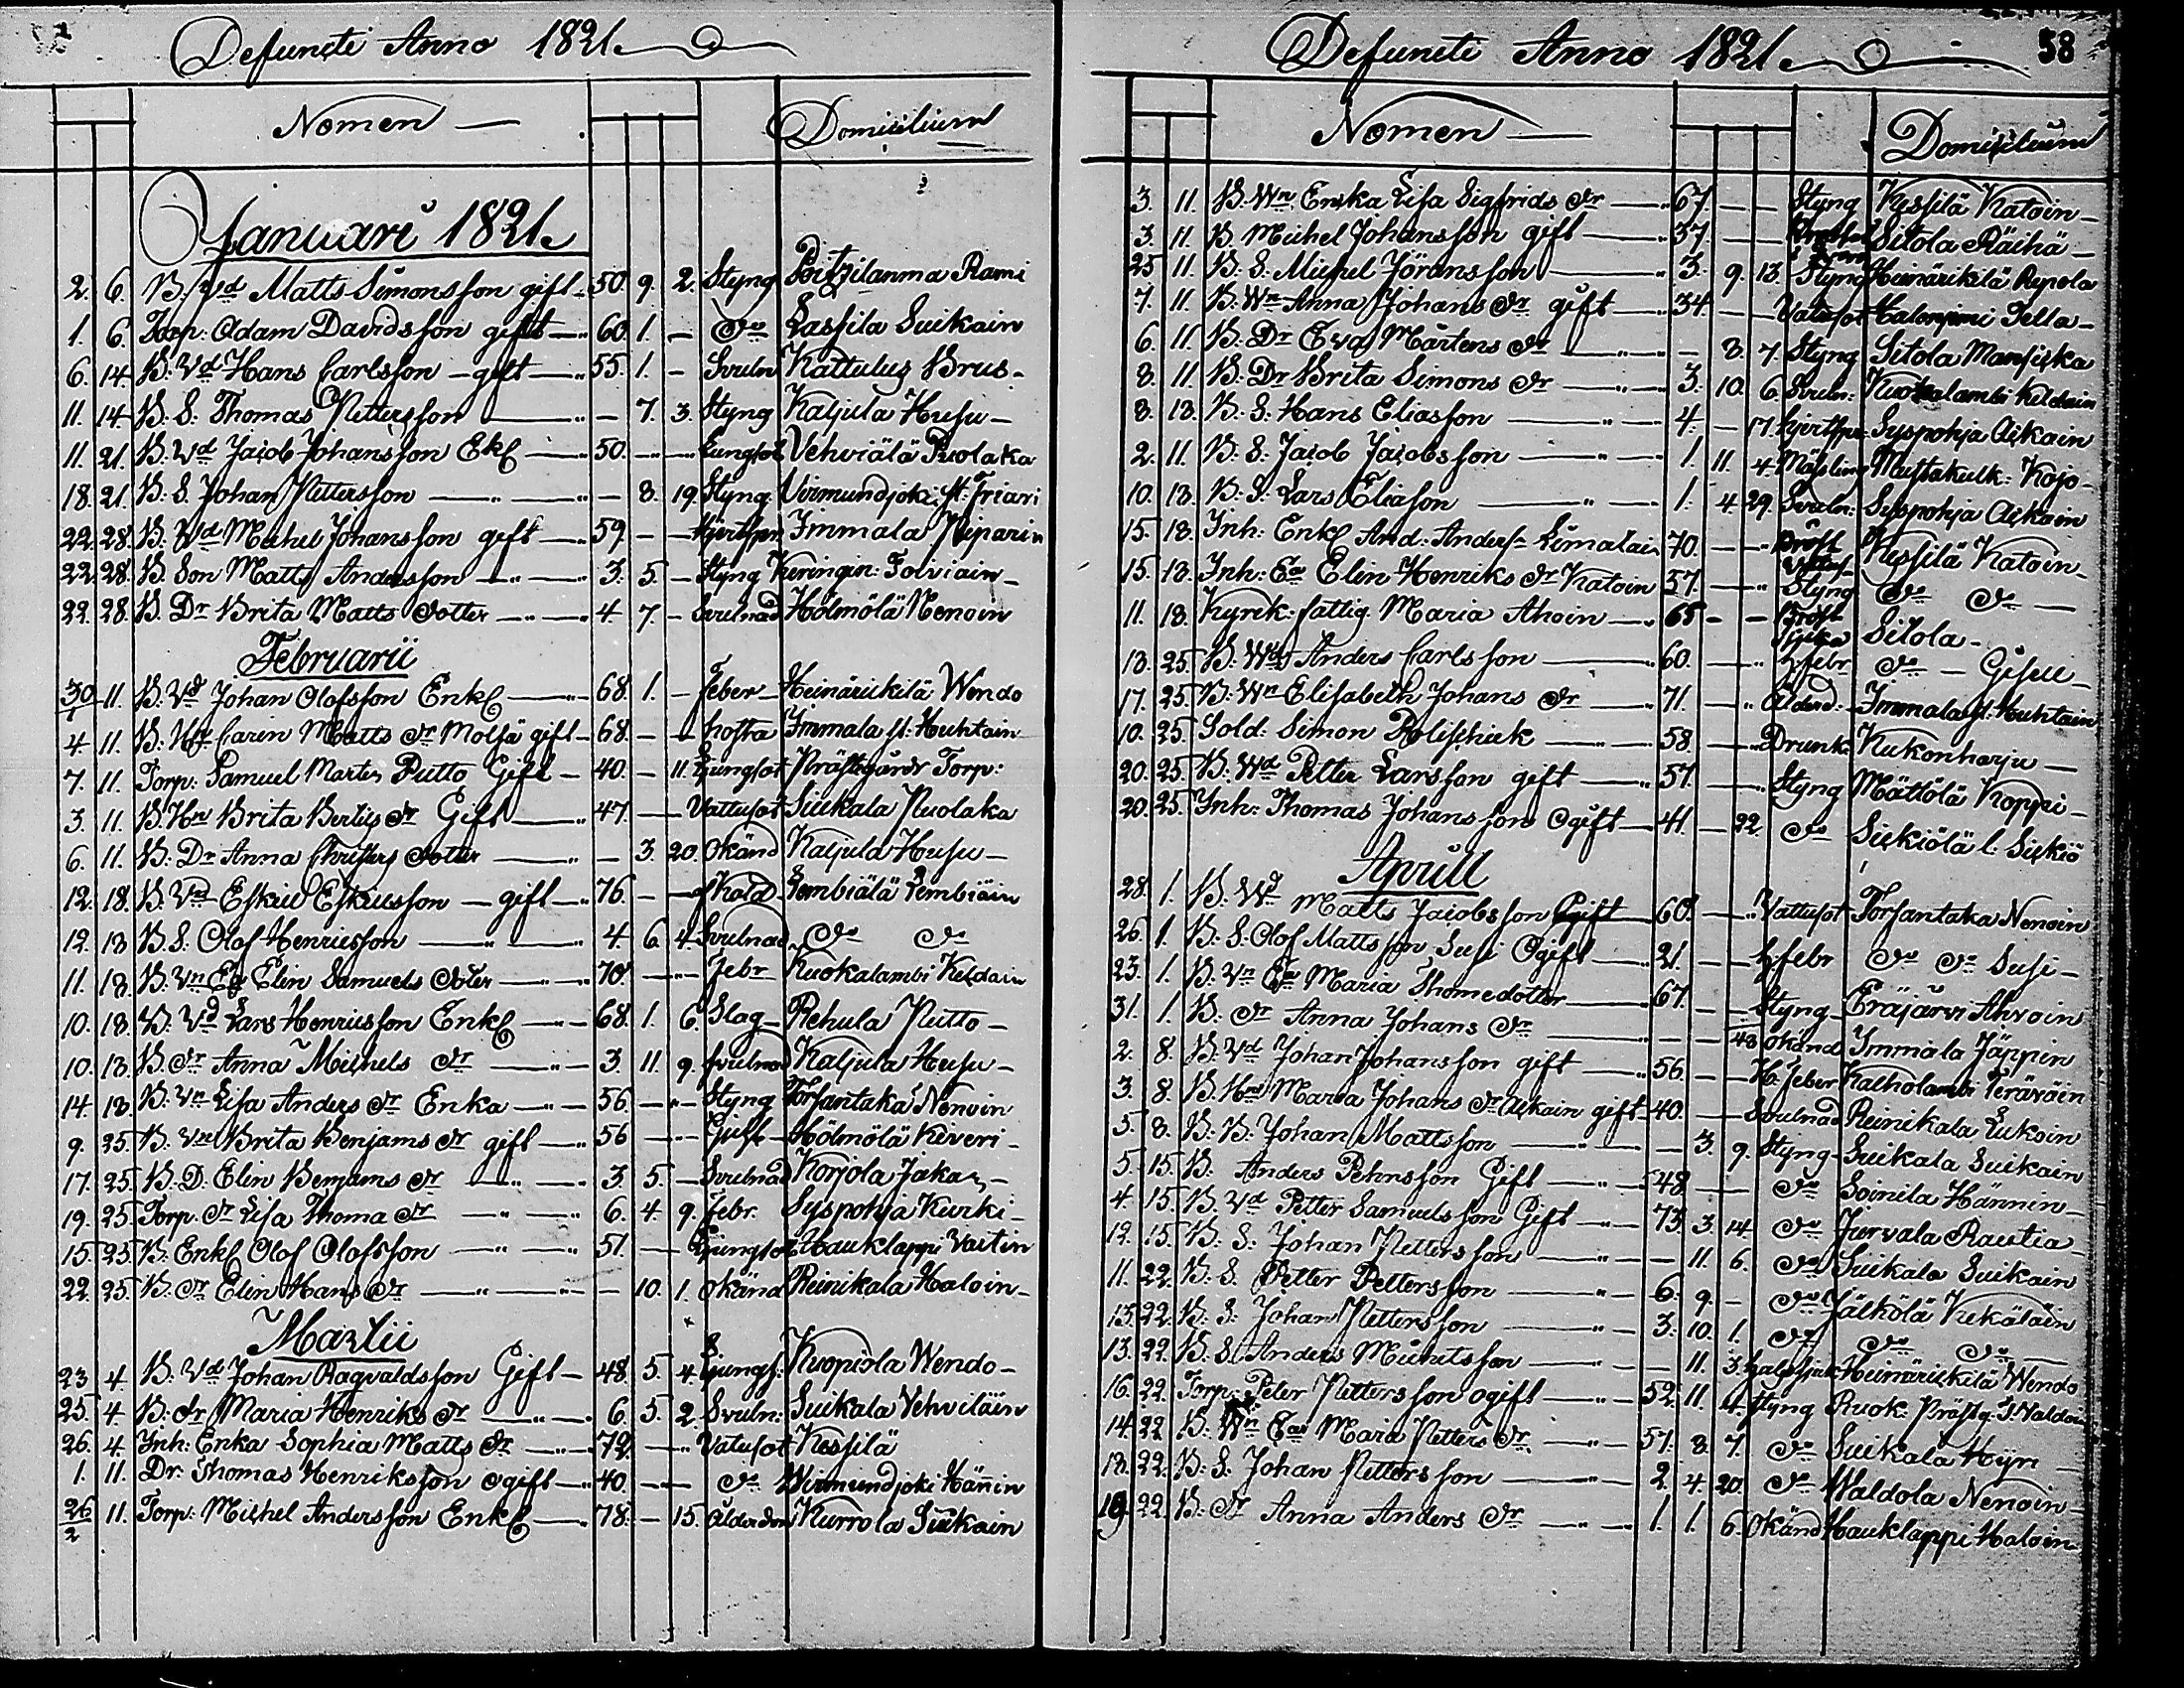 Defuncti Anno 1821.
Nomen Domicilium
Januari 1821.
2. 6. B. Vd Matts Simonsson gift 50. 9. 2. Styng Poitzilanma Rami
1. 6. Torp: Adam Davidsson gift 60. 1. - do Lassila Suikain
6. 14. B. Vd Hans Carlsson - gift 55. 1. - Svuln Kattulus Brus
11. 14. B. S. Thomas Pettersson - 7. 3. Styng Kaljula Husu
11. 21. B. Vd Jacob Johansson Ekl 50. Lungsot Vehviälä Puolaka
18. 21. B. S. Johan Pettersson - 8. 19. Styng Virmundjoki st: Friari
22. 28. B. Vd Michel Johansson gift 59. - - Hjertspn Immala Piiparin
22. 28. B. Son Matts Andersson 3. 5. - Styng Keringin: Tolviain
22. 28. B. Dr Brita Matts dotter 4 7. - Svulnad Hölmölä Nenoin
Februarii
30/1 11. B. Vd Johan Olofsson Enkl 68. 1. - feber Heinärickilä Wendo
4. 11. B. Hn Carin Matts dr Molsä gift 68. - - hosta Immala st. Huhtain
7. 11. Torp: Samuel Martis Putto Gift - 40. - 11. Ljungsot Prästgårds Torp:
3. 11. B. Hn Brita Bertils dr Gift 47. Vattusot Suikala Puolaka
6. 11. B. Dr Anna Christers dotter - 3. 20. Okänd Kaljula Husu
12. 18. B. Vd Eskiel Eskielsson - gift 76. - Håld Lembiälä Lembiäin
12. 18 B. S. Olof Henricsson 4. 6. 4 Svulnad do do
11. 18. B. Vn Ea Elin Samuels doter 70. febr Kuokalambi Keldain
10. 18. B. Vd Lars Henricsson Enkl 68. 1. 6. Slag Rehula Putto
10. 18. B. dr Anna Michels dr 3. 11. 9. svulnad Kaljula Husu
14. 18. B. Vn Lisa Anders dr Enka 56. Styng Torsantaka Nenoin
9. 25. B. Vn Brita Benjams dr gift 56 Gickt Hölmölä Kiveri
17. 25. B. D. Elin Benjams dr 3. 5. Svulnad Korjola Jakas
19. 25 Torp. dr Lisa Thoma dr 6. 4. 9. febr. Syspohja Kurki
15. 25 B. Enkl Olof Olofsson 51. Ljungsot Hauklappi Vartin
22. 25. B. dr Elin Hans dr - 10. 1. Okänd Reinikala Haloin
Martii
23 4. B. Vd Johan Ragvaldsson Gift 48. 5. 4. Ljungs. Kuopiola Wendo
25. 4. B. dr Maria Henriks dr 6. 5. 2. Svuln: Suikala Vehviläin
26. 4. Inh: Enka Sophia Matts dr 72. Vatusot Kessilä
1. 11. Dr. Thomas Henriksson ogift 40. do Wirmundjoki Hänin
26/2 11. Torp: Michel Andersson Enkl 78. - 15. Ålderdom Kurrola Suikain
Defuncti Anno 1821. 58
Nomen Domicilium
3. 11. B. Wn Enka Lisa Sigfrids dr 67. Styng Kessilä Katoin
3. 11. B. Michel Johansson gift 37. Sitola Räihä
25 11. B. S. Michel Jöransson 3. 9. 13. Styng Heinärickilä Repola
7. 11. B. Wn Anna Johans dr gift 34. Vatusot Halonpmi Tella
6. 11. B. Dr Eva Mårtens dr - 8. 7. Styng Sitola Mansicka
8. 11. B. Dr Brita Simons dr 3. 10. 6. Svuln: Kuokalambi Keldain
8. 18. B. S. Hans Eliasson 4. - 17. hjertspn Syspohja Ackain
2. 11. B. S. Jacob Jacobsson 1. 11. 4. Mässling Mustakulk: Kojo
10. 18. B. S. Lars Eliason 1. 4 29. Svuln: Syspohja Ackain
15. 18. Inh: Enkl And: Anders. Limatain 70. Bröst Kessilä Katoin
15. 18. Inh: Ea Elin Henriks dr Katoin 57. Styng do do
11. 18. Kyrk: fattig. Maria Ahoin 68 - - Bröst sjuka Sitola
18. 25. B. Wd Anders Carlsson 60. hfebr do - Gisui
17. 25 B. Wn Elisabeth Johans dr 71. Ålderd. Immala st. Huhtain
10. 25. Sold. Simon Rolischick 58. Drunk: Kukonharju
20. 25. B. Wd Petter Larsson gift 57. Styng Mättölä Koppi
20. 25. Inh: Thomas Johansson Ogift 41. - 22. do Sickiölä l. Sickiö
Aprill
28. 1. B. Wd Matts Jacobsson Gift 60. Vattusot Torsantaka Nenoin
26. 1. B. S. Olof Mattsson Susi Ogift 21. hfebr do do Susi
23. 1. B. Vn Ea Maria Thomedotter 67. - - Styng Eräjärvi Ahvoin
31. 1. B. dr Anna Johans dr - - 48 okänd Immala Jäppin
2. 8. B. Vd Johan Johansson gift 56. - - H. feber Kalholambi Teräväin
3. 8. B. Hn Maria Johans dr Ackain gift 40. Svulnad Reinikala Luksin
5. 8. B. B. Johan Mattsson - 3. 9. Styng Suikala Suikain
5. 15. B. Anders Pehrsson Gift 48 do Soinila Hännin
4. 15. B. Vd Petter Samuelsson Gift 73. 3. 14. do Jurvala Rautia
12. 15. B. S. Johan Pettersson - 11. 6. do Suikala Suikain
11. 22. B. S. Petter Pettersson 6. 9. - do Jälkölä Kekäläin
13. 22. B. S. Johan Pettersson 3. 10. 1. do do do
13. 22. B. S. Anders Mickelsson - 11. 3. halssjuk Heinärickilä Wendo
16. 22. Torp: Peter Pettersson ogift 52. 11. 4. Styng Ruok: Prästg. T. Valdoin
14. 22. B. Wn Ea Maria Petters dr 57. 8. 7. do Suikala Hyri
18. 22. B. S. Johan Pettersson 2. 4. 20. do Waldola Nenoin
19. 22. B. dr Anna Anders dr 1. 1. 6. Okänd Hauklappi Haloin